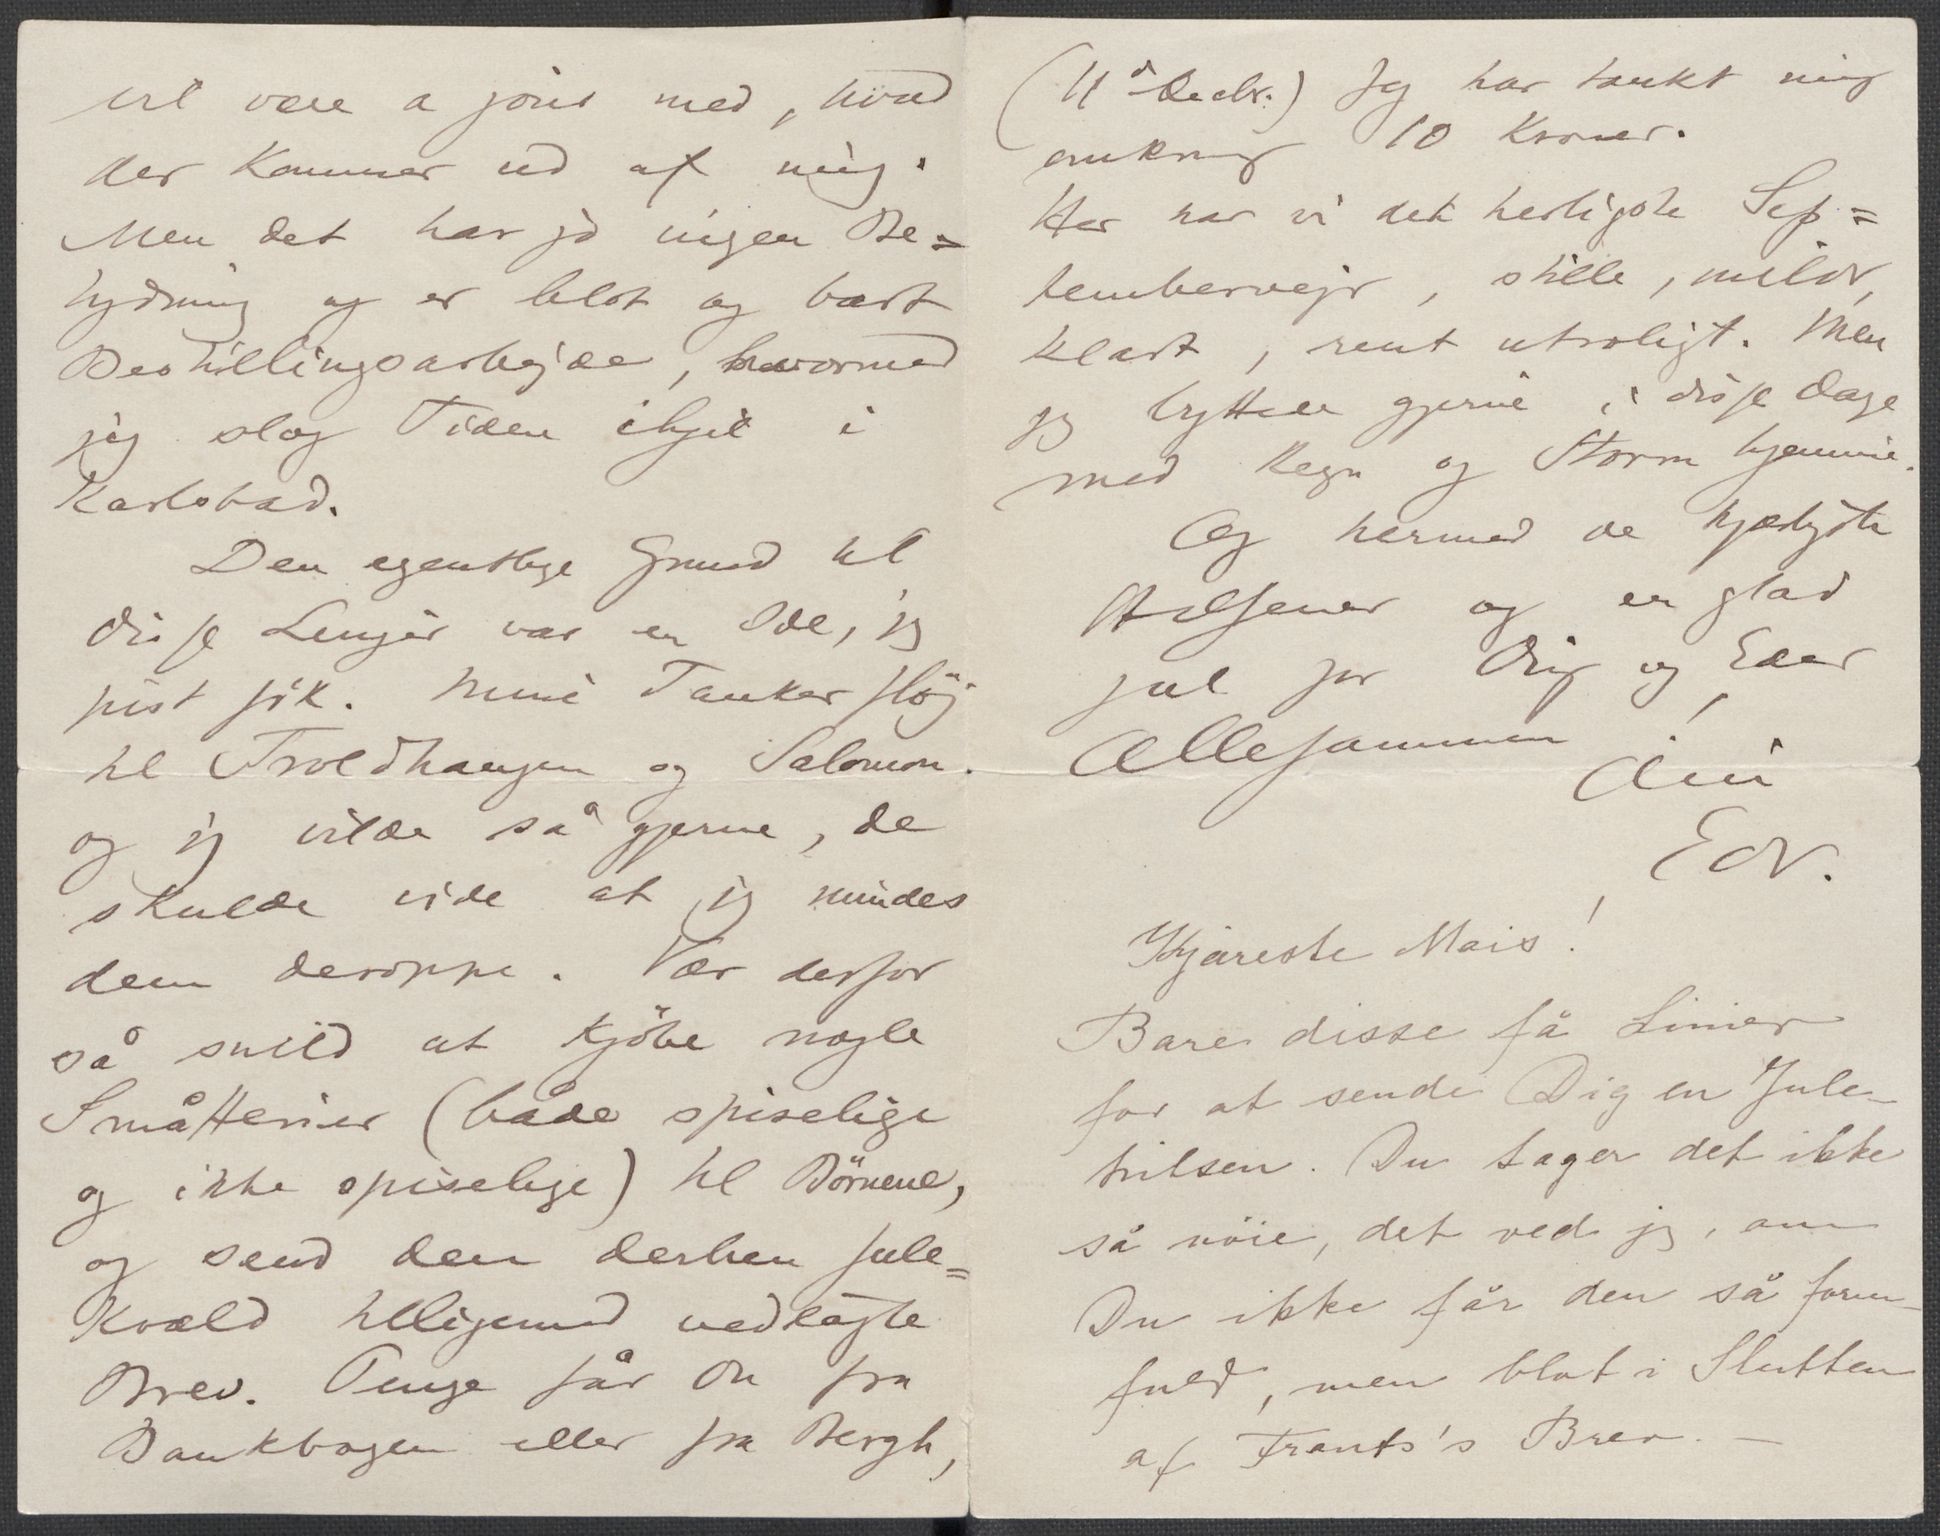 vil være a jour med, hvad
der kommer ud af mig.
Men det har jo ingen Be=
tydning og er blot og bart
Bestillingsarbejde, hvormed
jeg slog Tiden ihjel i
Karlsbad.
Den egentlige Grund til
disse Linjer var en Idé, jeg
just fik. Mine Tanker fløj
til Troldhaugen og Salomon.
og jeg vilde så gjerne, de
skulde vide at jeg mindes
dem deroppe. Vær derfor
så snild at kjöbe nogle
Småtterier (både spiselige
og ikke spiselige) til Börnene,
og send dem derhen Jule=
kvæld tilligemed vedlagte
Brev. Penge får Du fra
Bankbogen eller fra Bergh,
(11te Decbr.) Jeg har tænkt mig
omkring 10 Kroner.
Her har vi det herligste Sep=
tembervejr, stille, mildt,
klart, rent utroligt. Men
jeg byttede gjerne i disse Dage
med Regn og Storm hjemme.
Og hermed de hjærtligste
Hilsener og en glad
Jul for Dig og Eder
Allesammen
Din
Edv.
Kjæreste Mais!
Bare disse få Linier
for at sende Dig en Jule-
hilsen. Du tager det ikke
så nöie, det ved jeg, om
Du ikke får den så form-
fuld, men blot i Slutten
af Frants's Brev. —